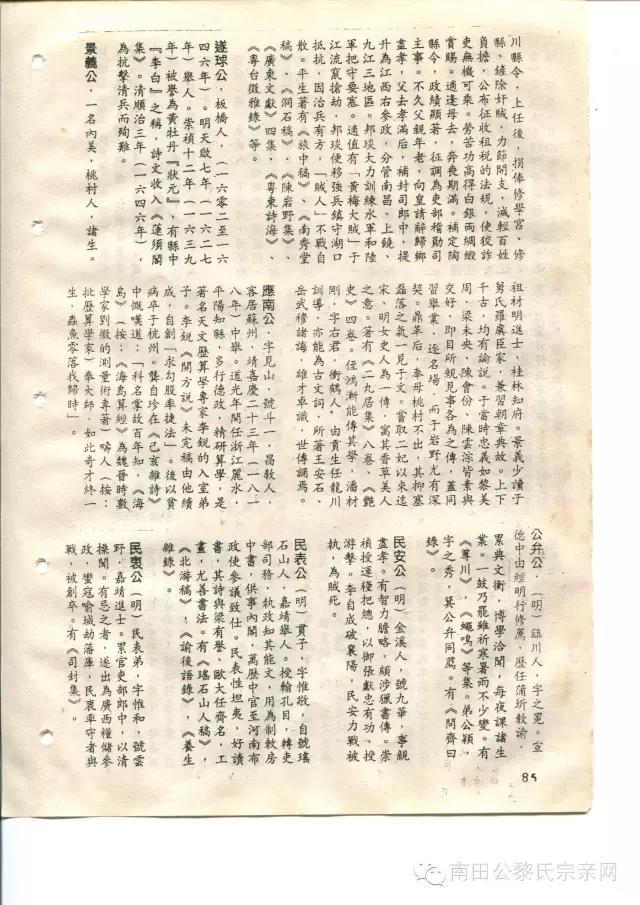 川縣令,上任後,捐俸修學宮、修
縣、鏟除奸賊,力節開支,減輕百姓
負擔,公布征收租稅的法規,使狡詐
吏無機可乘。勞苦功高得白銀兩綢緞
賞賜。適逢母去,奔喪期滿。補定陶
縣令,政績顯著,征調為吏部稽勳司
主事。不久父親年老,向皇請辭歸鄉
盡孝,父去孝滿後,補封司郎中,提
升為江西右參政,分管南昌、上饒、
九江三地區。邦琰大力訓練水軍和陸
軍把守要塞。適值有「黃梅大賊」于
江流竄搶劫,邦琰便移強兵鎮守湖口
抵抗,因治兵有方,「賊人」不戰自
散。平生著有《旅中稿》、《南秀堂
稿》、《洞石稿》、《陳岩野集》、
《廣東文獻》四集、《粵東詩海》、
《粵台徵雅錄》等。
遂球公,板橋人,(一六零二至一六
四六年)。明天啟七年(一六二七
年)舉人。崇禎十二年(一六三九
年)被譽為黃牡丹『狀元』,有縣中
『李白』之稱,詩文收入《蓮須閣
集》。清順治三年(一六四六年),
為抗擊清兵而殉難。
景義公,一名內美,桃村人,諸生。
祖材明進士,桂林知府。景義少讀于
舅氏羅虞臣家,兼習朝章典故。上下
千古,均有論說。于當時忠義如黎美
周、梁未央、陳會份、陳雲淙皆素與
交好,即目所親見事各為之傳,蓋同
習舉業,逐名場,而于岩野尤有深
契。鼎革後,奉母桃村不出,其抑塞
磊落之氣一見于文。嘗取二妃以來迄
宋、明女史人為一傳,寓其香草美人
之意。著有《二九居集》八卷、《艷
史》四卷。侄鴻漸能傳其學,潘材
剛,字右君,衝鶴人,由貢生任龍川
訓導,亦能為古文詞,所著王安石、
岳武穆諸論,雄才卓識,世傳誦焉。
應南公,字見山,號斗一,昌教人,
客居蘇州,靖嘉慶二十三年(一八一
八年)中舉。道光年間任浙江麗水,
平陽知縣,多行德政,精研算學,是
著名天文歷算學專家李銳的入室弟
子。李銳《開方說》未完稿由他續
成,自創「求勾股率捷法」。後以貧
病卒于杭州。龔自珍在《己亥雜詩》
中慨嘆道:「科名掌故百年知,《海
島》(按:《海島算經》為魏晉時數
學家劉徽的測量術專著)疇人(按:
批歷算學家)奉大師,如此奇才終一
生,蟲魚零落我歸時」。
公弁公,(明)臨川人,字之冕。宣
德中由經明行修薦,歷任蒲圻教諭,
累典文衡,博學洽聞,每夜課諸生
業。一鼓乃罷雖祈寒暑雨不少變。有
《籌川》、《蠅鳴》等集。弟公穎,
字之秀,箕公升同薦。有《問齊日
錄》。
民安公(明)金溪人,號九華,事親
盡孝。有智力膽略,頗涉獵書傳。崇
禎授運糧把總,以御張獻忠有功,授
游擊。李自成破襄陽,民安力戰被
執,為賊死。
民表公(明)貫子,字惟敬,自號瑤
石山人,嘉靖舉人。授翰孔目,轉吏
部司務,執政知其能文,用為制敕房
中書,供事內閣,萬歷中官至河南布
政使參議致仕。民表性坦夷,好讀
書,其詩與梁有譽、歐大任齊名,工
畫,尤善書法。有《瑤石山人稿》,
《北游稿》、《諭後語錄》,《養生
雜錄》。
民衷公(明)民表弟,字惟和,號雲
野,嘉靖進士。累官吏部郎中,以清
操聞。有忌之者,遂出為廣西糧儲參
政,蠻寇喻城劫藩庫,民衷率守者與
戰,被創卒。有《司封集》。
85
南田公黎氏宗亲网